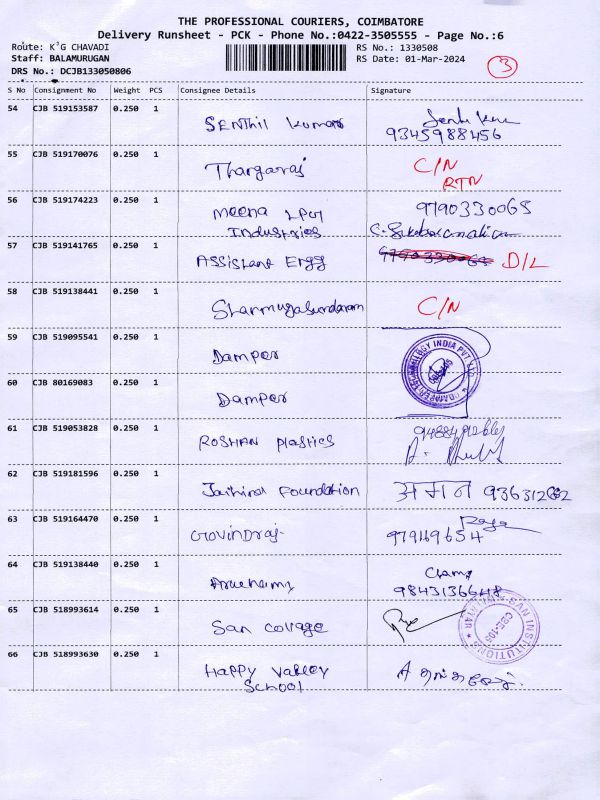 THE PROFESSIONAL COURIERS, COIMBATORE
Delivery Runsheet - PCK - Phone No.:0422-3505555 - Page No.:6
Route: K'G CHAVADI
RS No.: 1330508
Staff: BALAMURUGAN
RS Date: 01-Mar-2024
3
DRS No.: DCJB133050806
S No Consignment No Weight PCS Consignee Details Signature
54 CJB 519153587 0.250 1
Senthil Kumar
9345988456
55 CJB 519170076 0.250 1
Thargaraj C/N
RTN
56 CJB 519174223 0.250 1
Meena LPG 9790330065
Industries
57 CJB 519141765 0.250 1
Assistant Engg D/L
58 CJB 519138441 0.250 1
Shanmugasundaram C/N
59 CJB 519095541 0.250 1
Damper
60 CJB 80169083 0.250 1
Damper
61 CJB 519053828 0.250 1
Roshan Plastics
62 CJB 519181596 0.250 1
Jaihind Foundation अमान
63 CJB 519164470 0.250 1
Raja
Govindraj
64 CJB 519138440 0.250 1
9843136648
65 CJB 518993614 0.250 1
San College
SAN INSTITUTIONS
CBE-105
66 CJB 518993630 0.250 1
Happy Valley
School